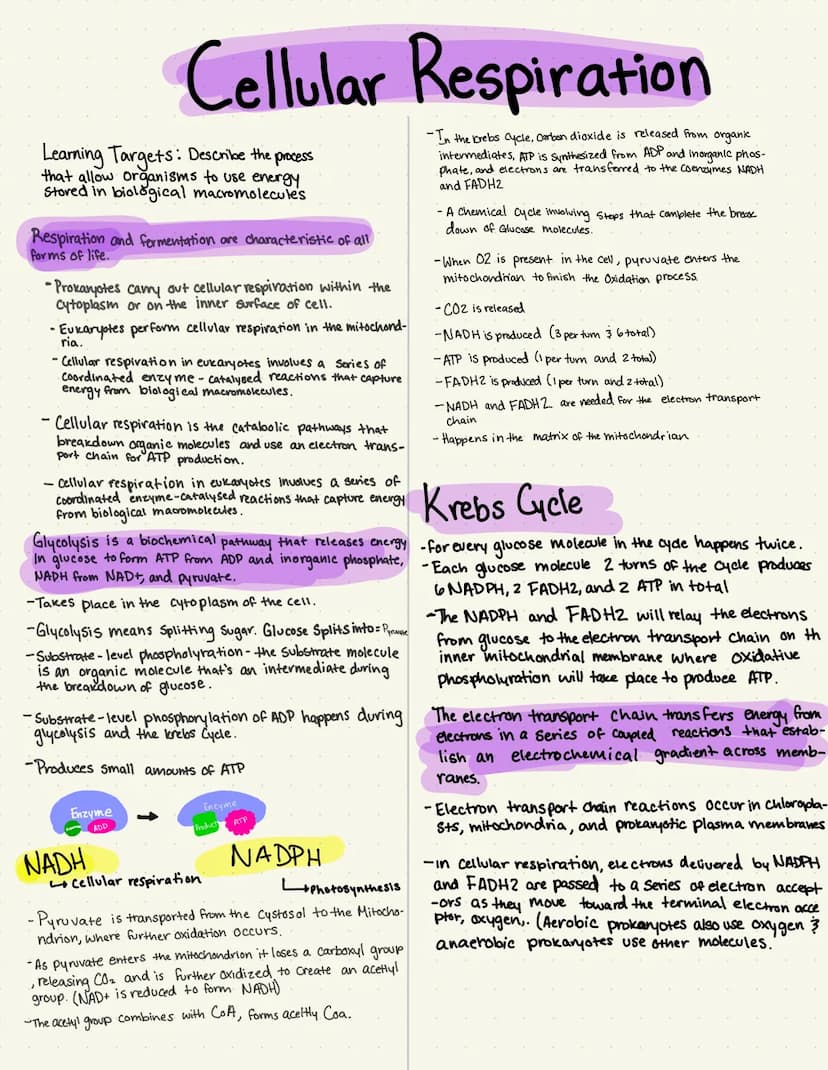 Cellular Respiration
Learning Targets: Describe the process
that allow organisms to use energy
stored in biological macromolecules
Respiration and fermentation are characteristic of all
forms of life.
- Prokaryotes carry out cellular respiration within the
cytoplasm or on the inner surface of cell.
- Eukaryotes perform cellular respiration in the mitochond-
ria.
- Cellular respiration in eukaryotes involves a series of
coordinated enzyme-catalysed reactions that capture
energy from biological macromolecules.
- Cellular respiration is the catabolic pathways that
breakdown organic molecules and use an electron trans-
port chain for ATP production.
- Cellular respiration in eukaryotes involves a series of
coordinated enzyme-catalysed reactions that capture energy
from biological macromolecules.
Glycolysis is a biochemical pathway that releases energy
in glucose to form ATP from ADP and inorganic phosphate,
NADH from NAD+, and pyruvate.
- Takes place in the cytoplasm of the cell.
- Glycolysis means splitting sugar. Glucose splits into=
- Substrate-level phospholyration - the substrate molecule
is an organic molecule that's an intermediate during
the breakdown of glucose.
- Substrate-level phosphorylation of ADP happens during
glycolysis and the krebs cycle.
- Produces small amounts of ATP
Enzyme
ADD
Enzyme
Product
ATP
NADH
↳ Cellular respiration
NADPH
↳ Photosynthesis
- Pyruvate is transported from the cystosol to the Mitocho-
ndrion, where further oxidation occurs.
- As pyruvate enters the mitochondrion it loses a carboxyl group
, releasing CO2 and is further oxidized to create an acetlyl
group. (NAD+ is reduced to form NADH)
- The acetyl group combines with CoA, forms aceltly Coa.
- In the krebs cycle, carbon dioxide is released from organic
intermediates, ATP is synthesized from ADP and inorganic phos-
phate, and electrons are transferred to the coenzymes NADH
and FADH2
- A chemical cycle involving steps that complete the break
down of Glucose molecules.
- When O2 is present in the cell, pyruvate enters the
mitochondrian to finish the oxidation process.
- CO2 is released
- NADH is produced (3 per turn & 6 total)
- ATP is produced (1 per turn and 2 total)
- FADH2 is produced (1 per turn and 2 total)
- NADH and FADH2 are needed for the electron transport
chain
- Happens in the matrix of the mitochondrian
Krebs Cycle
- for every glucose molecule in the cycle happens twice.
- Each glucose molecule 2 turns of the cycle produces
6 NADPH, 2 FADH2, and 2 ATP in total
- The NADPH and FADH2 will relay the electrons
from glucose to the electron transport chain on th
inner mitochondrial membrane where oxidative
phospholyration will take place to produce ATP.
The electron transport chain transfers energy from
electrons in a series of coupled reactions that estab-
lish an electrochemical gradient across memb-
ranes.
- Electron transport chain reactions occur in chloropla-
sts, mitochondria, and prokaryotic plasma membranes
- in cellular respiration, electrons delivered by NADPH
and FADH2 are passed to a series of electron accept
-ors as they move toward the terminal electron acce
ptor, oxygen,. (Aerobic prokaryotes also use oxygen &
anaerobic prokaryotes use other molecules.